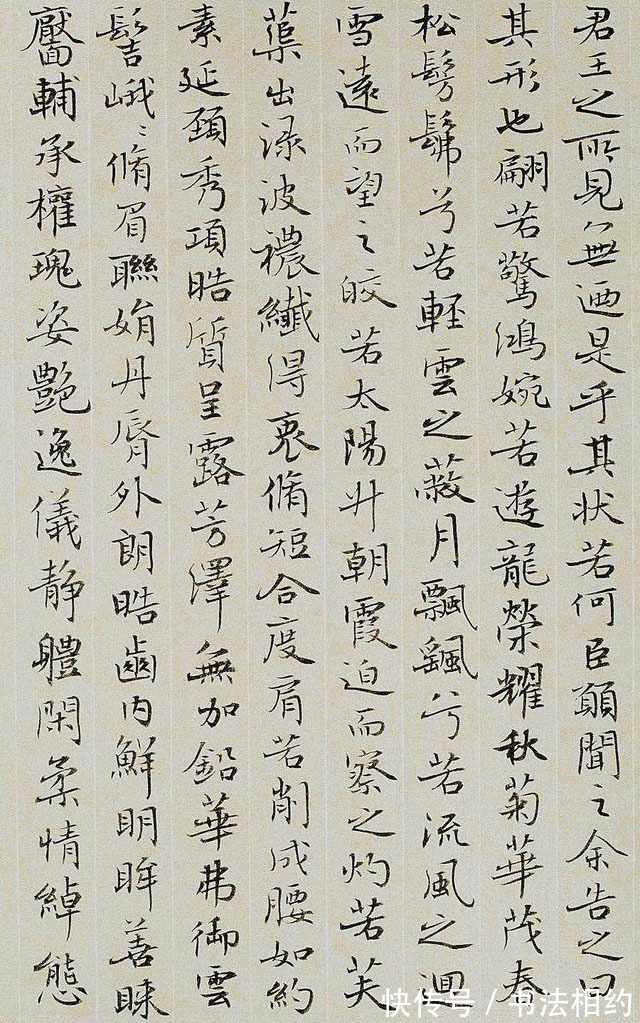 君王之所見無迺是乎其狀若何臣願聞之余告之曰
其形也翩若驚鴻婉若遊龍榮耀秋菊華茂春
松髣髴兮若輕雲之蔽月飄颻兮若流風之迴
雪遠而望之皎若太陽升朝霞迫而察之灼若芙
蕖出淥波襛纖得衷脩短合度肩若削成腰如約
素延頸秀項皓質呈露芳澤無加鉛華弗御雲
髻峨〻脩眉聯娟丹脣外朗皓齒内鮮明眸善睞
靨輔承權瑰姿艷逸儀静體閑柔情綽態
快传号/书法相约